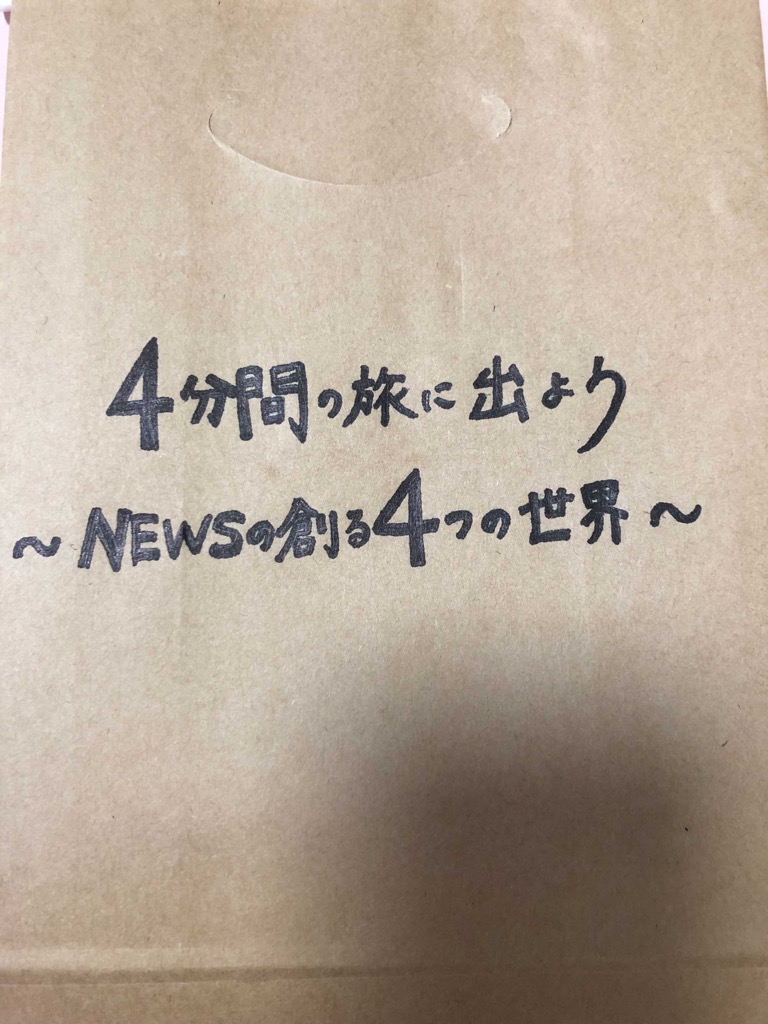 4分間の旅に出よう
～NEWSの創る4つの世界～